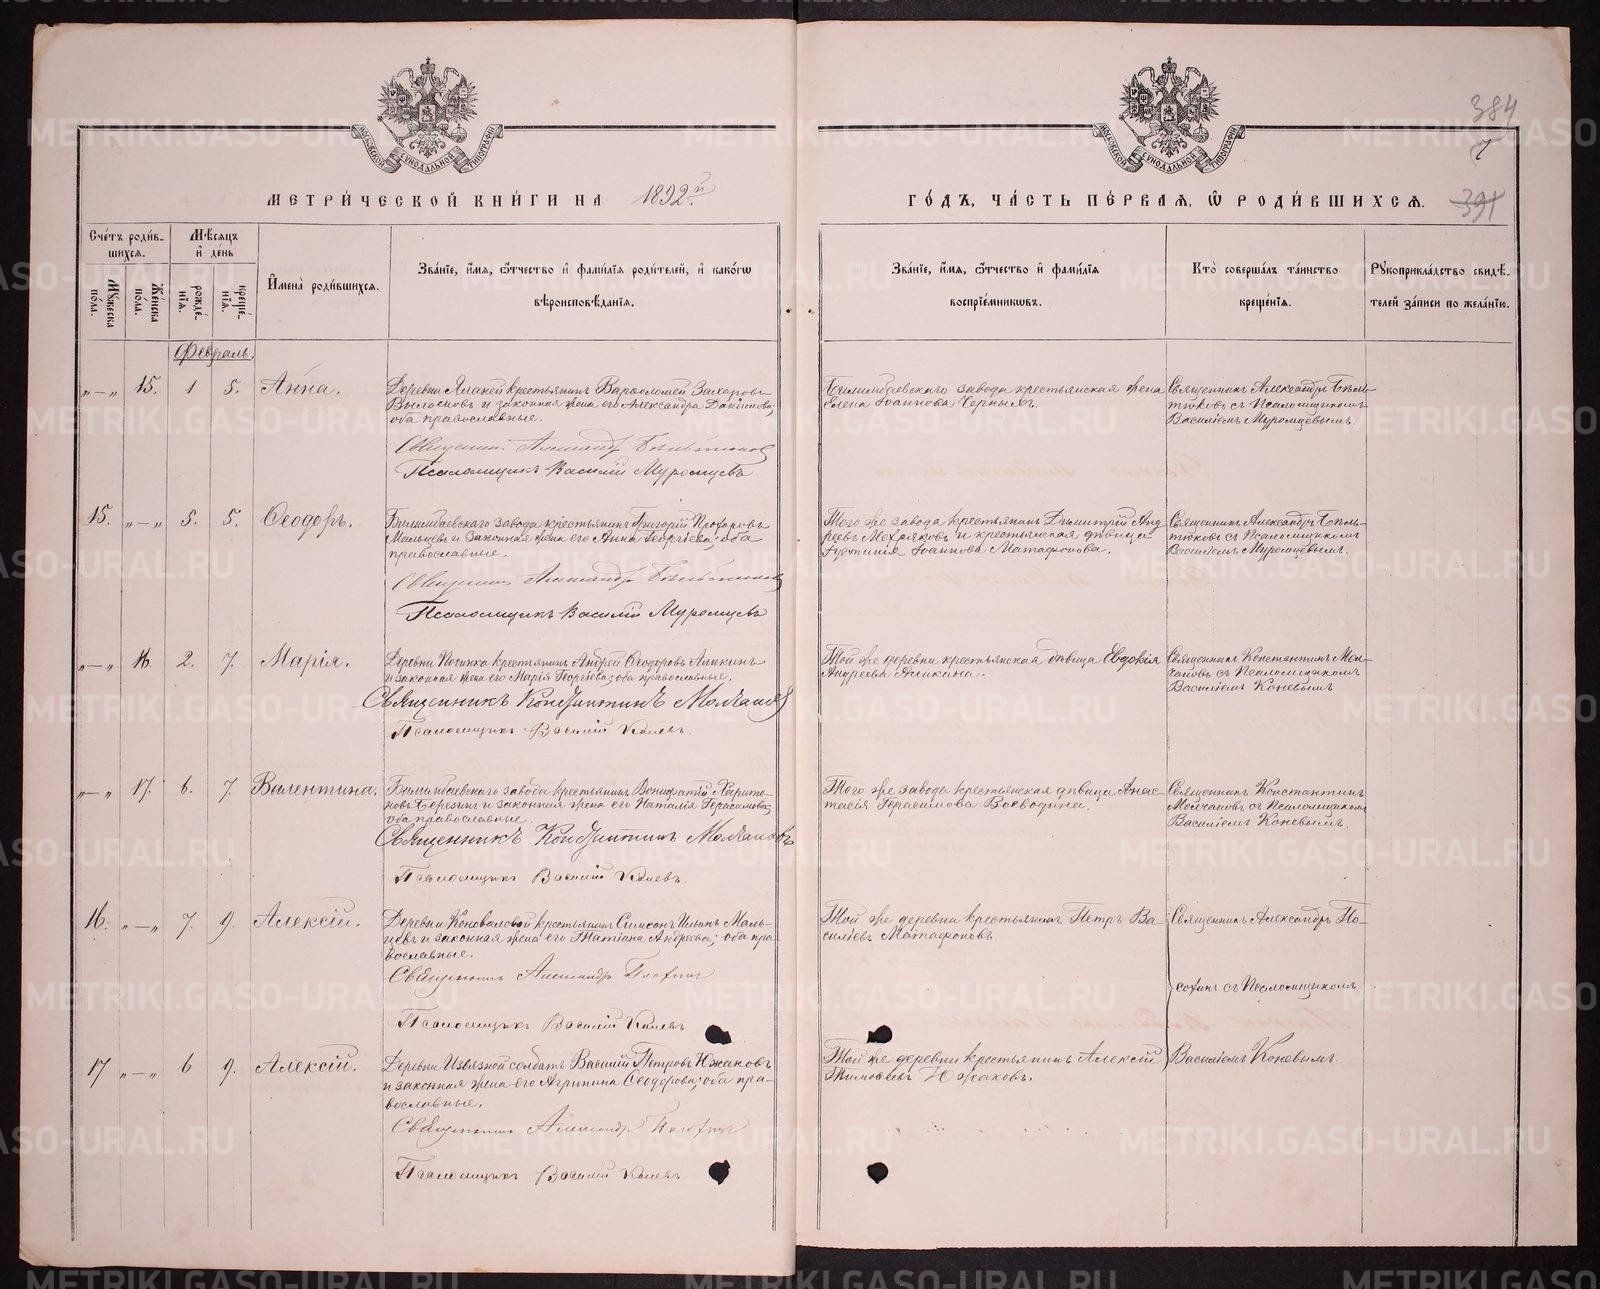 384
7
391
МЕТРИ́ЧЕСКОЙ КНИ́ГИ НА 1892й
ГО́ДЪ, ЧА́СТЬ ПЕ́РВАЯ, Ѽ РОДИ́ВШИХСЯ.
Сче́тъ роди́в-
шихся.
Мѣ́сяцъ
и҆ де́нь
Му́жеска
по́ла.
Же́нска
по́ла.
рожде́-
нїя.
креще́-
нїя.
И҆мена̀ роди́вшихся.
Зва́нїе, и҆́мя, ѿтчество и҆ фами́лїя роди́телей, и҆ како́гѡ
вѣроисповѣ́данїя.
Зва́нїе, и҆́мя, ѿтчество и҆ фами́лїя
воспрїе́мниковъ.
Кто̀ соверша́лъ та́инство
креще́нїя.
Рꙋкоприкла́дство свидѣ́-
телей за́писи по жела́нїю.
Февраль.
„—„ 15. 1 5. Анна.
Деревни Крестьянинъ Варѳоломей Захаровъ
и законная жена его Александра
оба православные.
Священникъ Александръ
Псаломщикъ Василій Муромцевъ
Билимбаевскаго завода крестьянская жена
Елена Іоаннова Черныхъ.
Священникъ Александръ
съ Псаломщикомъ
Василіемъ Муромцевымъ.
15. „—„ 5. 5. Ѳеодоръ.
Билимбаевскаго завода крестьянинъ Григорій Прохоровъ
Мальцевъ и законная жена его Анна Георгіева; оба
православные.
Священникъ Александръ
Псаломщикъ Василій Муромцевъ
Того же завода крестьянинъ Димитрій Анд-
реевъ и крестьянская дѣвица
Іустинія Іоаннова Матафонова.
Священникъ Александръ
съ Псаломщикомъ
Василіемъ Муромцевымъ.
„—„ 16. 2. 7. Марія.
Деревни Починка крестьянинъ Андрей Ѳеодоровъ Аликинъ
и законная жена его Марія Георгіева; оба православные.
Священникъ Константинъ Молчановъ
Псаломщикъ Василій Коневъ.
Той же деревни крестьянская дѣвица Евдокія
Андреева Аликина.
Священникъ Константинъ Мол-
чановъ съ Псаломщикомъ
Василіемъ Коневымъ
„—„ 17. 6. 7. Валентина.
Билимбаевскаго завода крестьянинъ Вонифатій Харито-
новъ Березинъ и законная жена его Наталія Герасимова;
оба православные.
Священникъ Константинъ Молчановъ
Псаломщикъ Василій Коневъ.
Того же завода крестьянская дѣвица Анас-
тасія Герасимова Воеводина.
Священникъ Константинъ
Молчановъ съ Псаломщикомъ
Василіемъ Коневымъ.
16. „—„ 7. 9. Алексій.
Деревни Коноваловой крестьянинъ Симеонъ Ильинъ Маль-
цевъ и законная жена его Татіана Андреева; оба пра-
вославные.
Священникъ Александръ
Псаломщикъ Василій Коневъ
Той же деревни крестьянинъ Петръ Ва-
силіевъ Матафоновъ.
Священникъ Александръ По-
съ Псаломщикомъ
17 „—„ 6 9. Алексій.
Деревни Извѣзной солдатъ Василій Петровъ Южаковъ
и законная жена его Агрипина Ѳеодорова; оба пра-
вославные.
Священникъ Александръ
Псаломщикъ Василій Коневъ.
Той же деревни крестьянинъ Алексій
Тимоѳеевъ Южаковъ.
Василіемъ Коневымъ.
METRIKI.GASO-URAL.RU